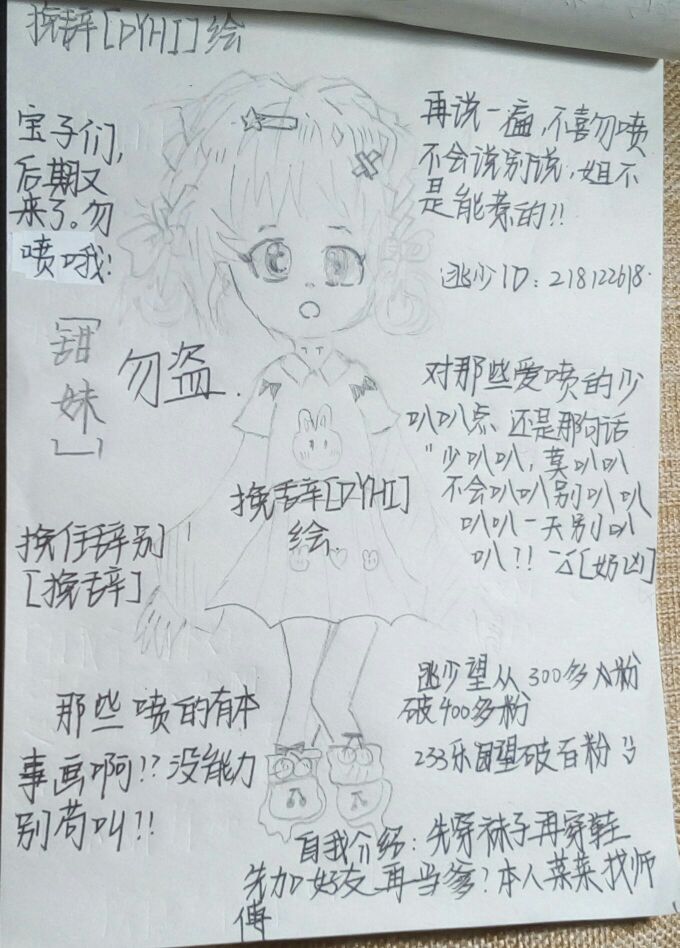 挽辞[DYHI]绘
宝子们,
后期又
来了。勿
喷哦!
再说一遍,不喜勿喷
不会说别说,姐不
是能惹的!!
逃少ID:218122618.
「甜妹」
勿盗.
对那些爱喷的少
叭叭点 还是那句话
"少叭叭,莫叭叭
不会叭叭别叭叭
叭叭一天别叭
叭!!
[奶凶]
挽辞[DYHI]
绘
挽住辞别
[挽辞]
逃少望从300多人粉
破400多粉
233乐园望破百粉
那些喷的有本
事画啊!?没能力
别苟叫!!
自我介绍:先穿袜子再穿鞋
先加好友再当爹!本人菜菜找师
傅